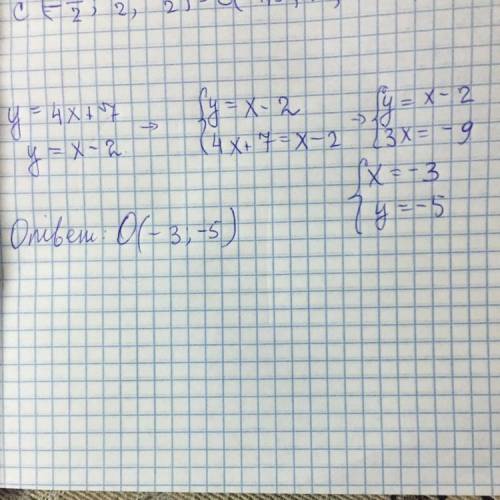 y = 4x+7 → { y = x-2 → { y = x-2
y = x-2 { 4x+7 = x-2 { 3x = -9
{ x = -3
{ y = -5
Ответ: O(-3; -5)